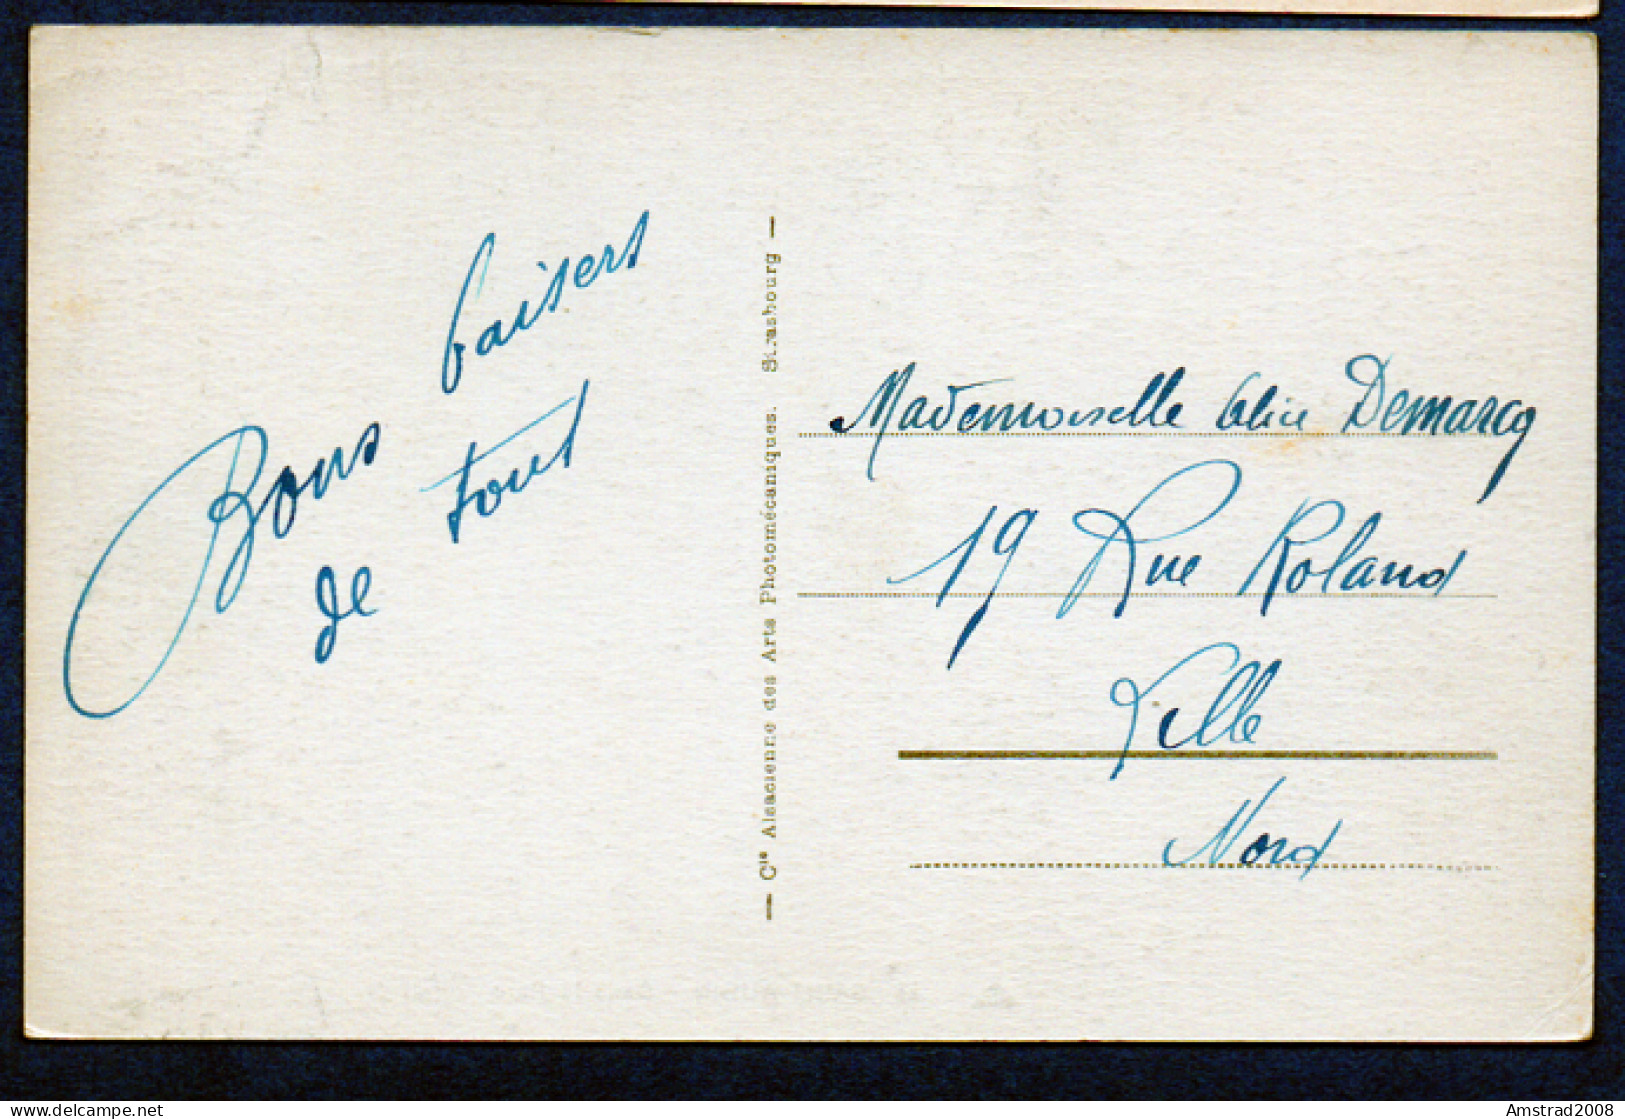 Bons baisers
de tout
— Cie Alsacienne des Arts Photomécaniques. Strasbourg —
Mademoiselle Demarcq
19 Rue Roland
Lille
Nord
www.delcampe.net
Amstrad2008